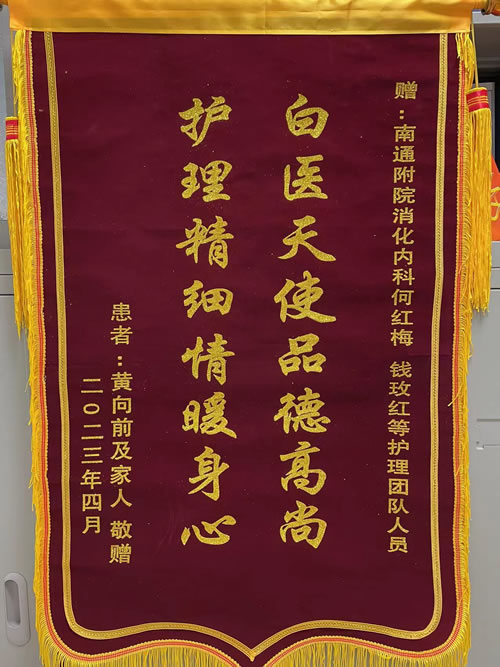 赠：南通附院消化内科何红梅 钱玫红等护理团队人员
白医天使品德高尚
护理精细情暖身心
患者：黄向前及家人 敬赠
二〇二三年四月